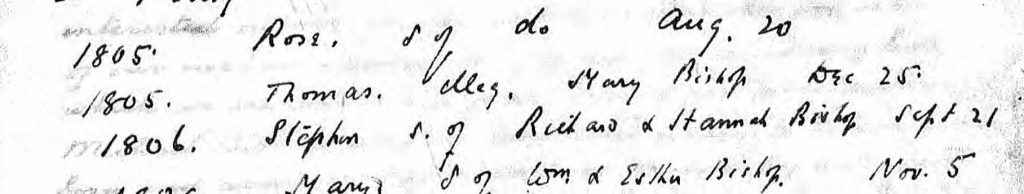 1805. Rose. d of do Aug. 20
1805. Thomas. illeg. Mary Bishop Dec 25.
1806. Stephen s. of Richard & Hannah Bishop Sept 21
Mary d of Wm & Esther Bishop. Nov. 5